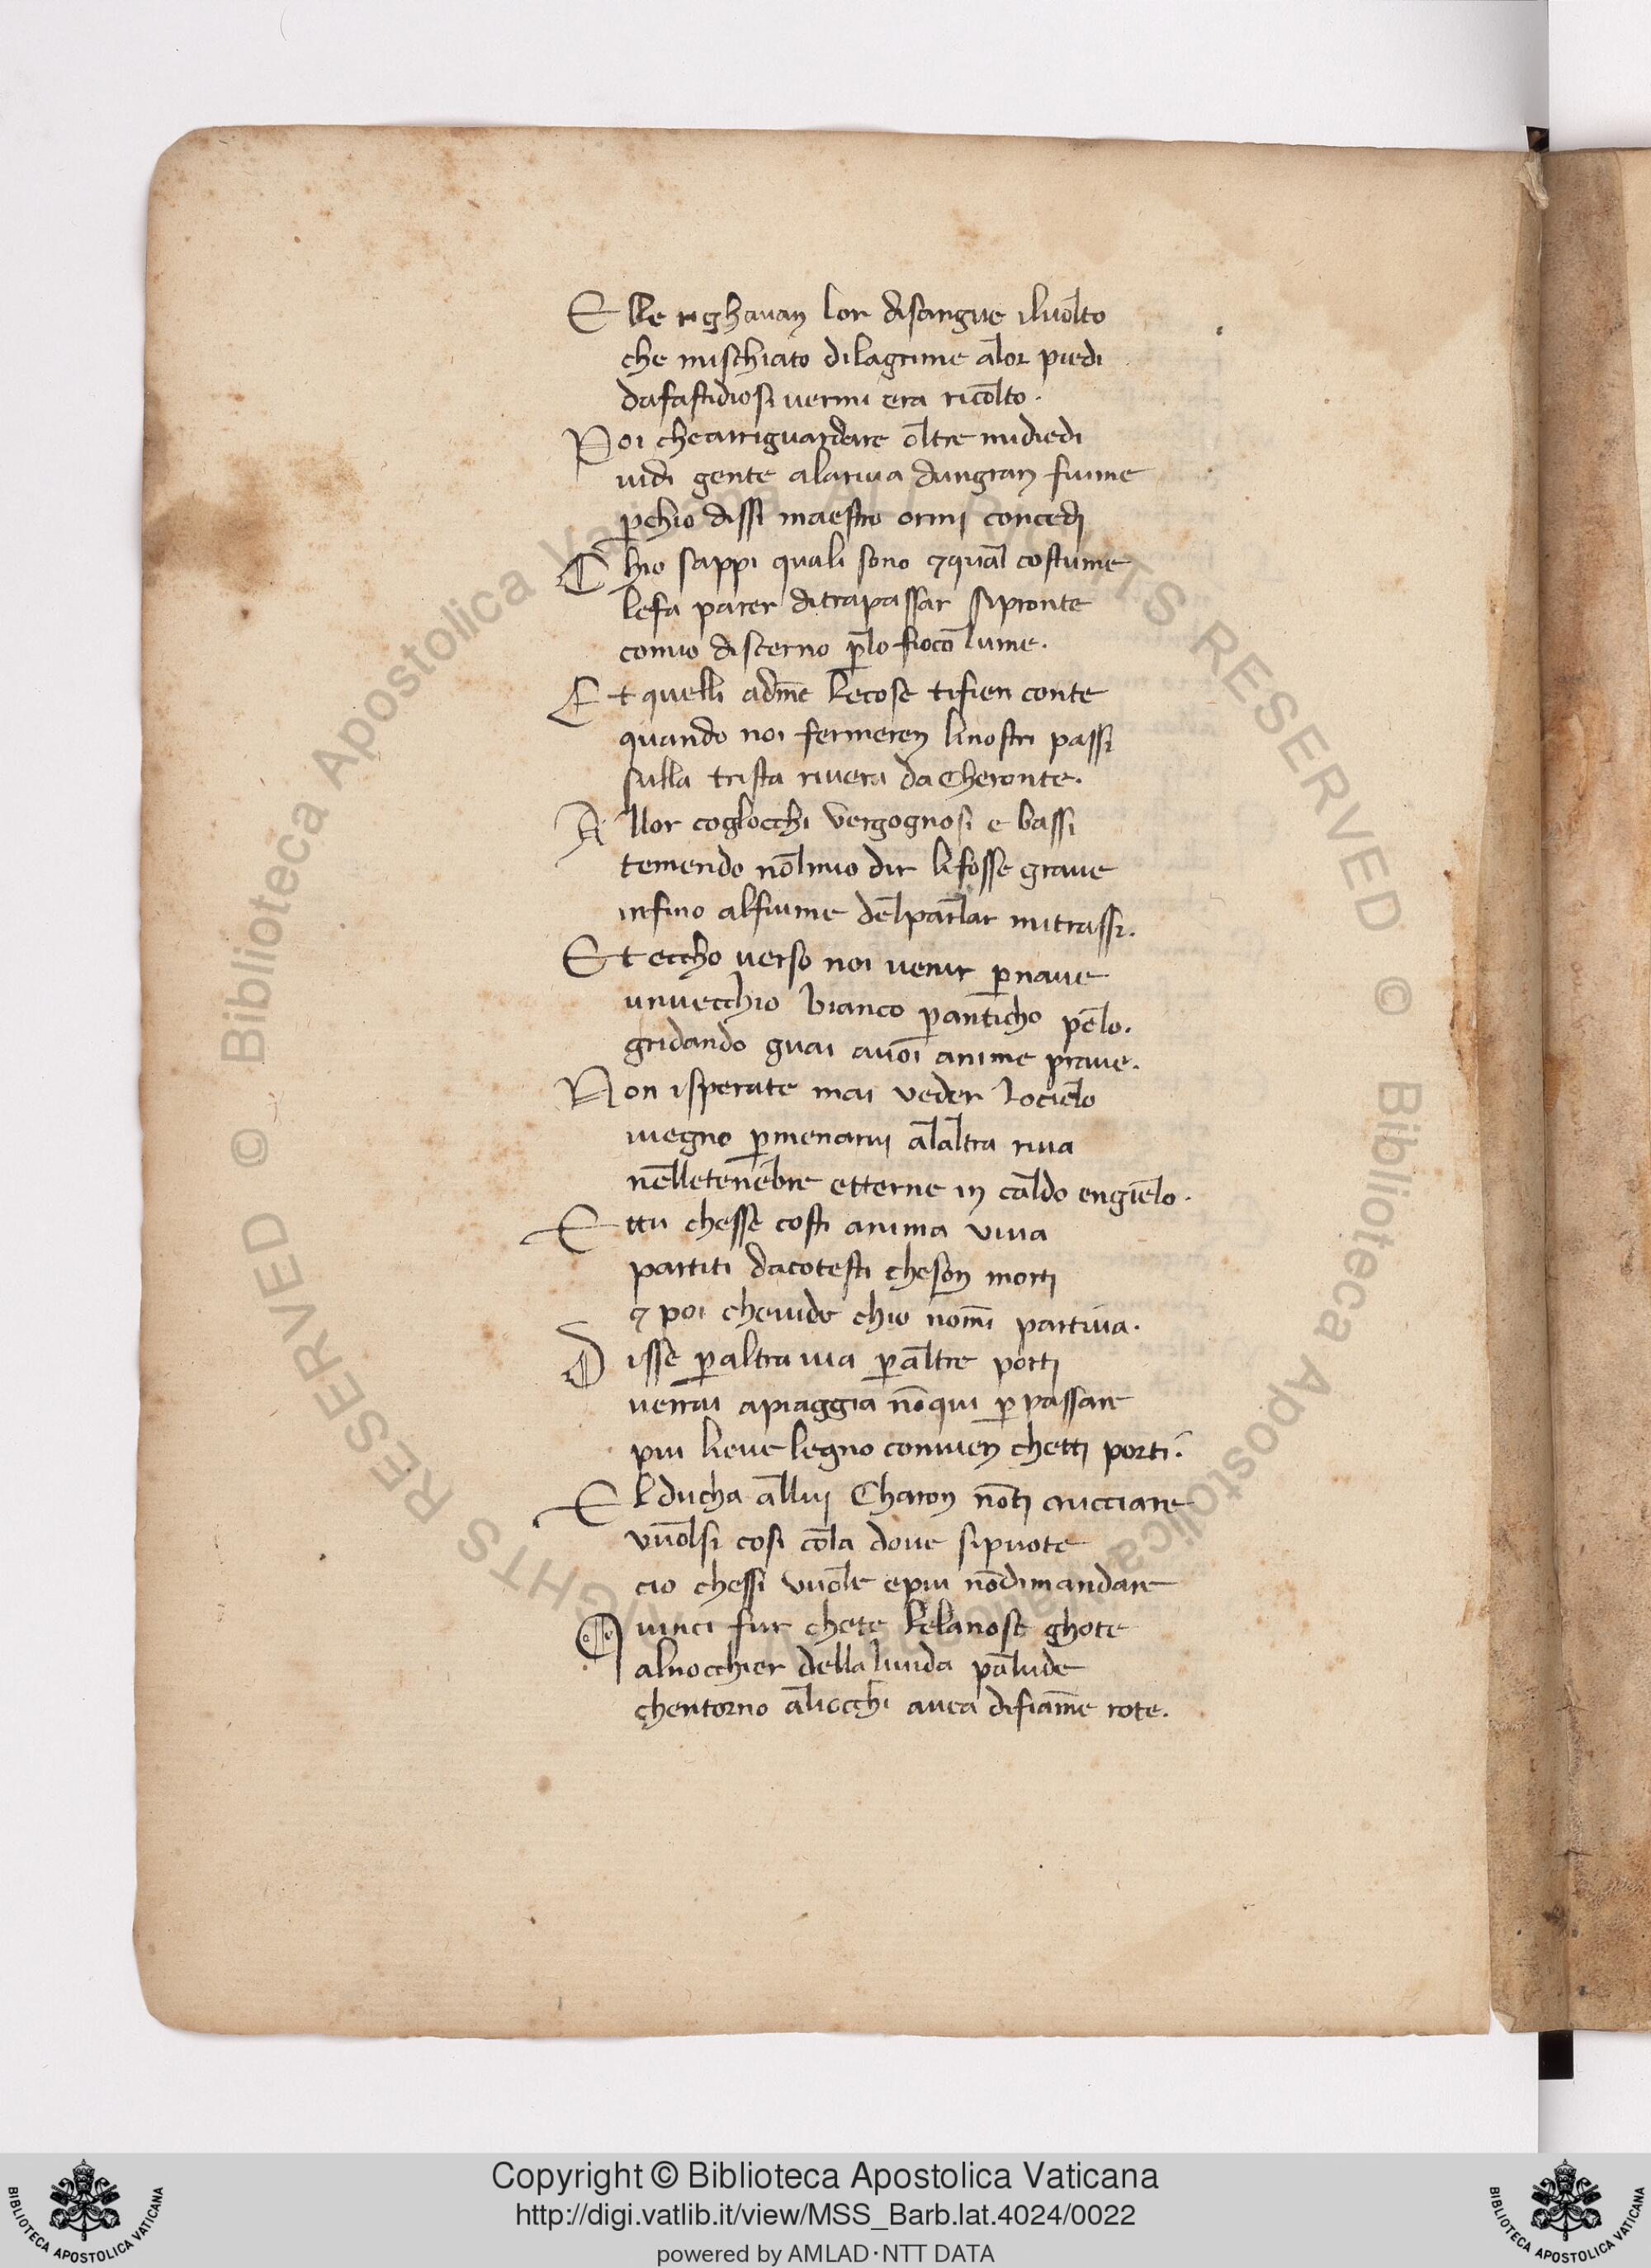 Elle righavan lor disangue iluolto
che mischiato dilagrime alor piedi
dafastidiosi uermi era ricolto.
Poi chearriguardare oltre midiedi
uidi gente alariua dungran fiume
p̱chio dissi maestro ormi concedi
Chio sappi quali sono ⁊qual costume
lefa parer ditrapassar sipronte
comio discerno p̱lo fioco lume.
Et quelli adme͂ lecose tifien conte
quando noi fermeren linostri passi
sulla trista riuera dacheronte.
Allor coglocchi vergognosi e bassi
temendo nōlmio dir lifosse graue
infino alfiume delparlar mitrassi.
Et eccho uerso noi uenir p̱naue
unuecchio bianco p̱anticho pelo.
gridando guai auoi anime praue.
Non isperate mai veder locielo
iuegno p̱menarui alaltra riua
nelletenebre etterne in caldo engielo.
Ettu chesse costi anima viua
partiti dacotesti cheson morti
⁊ poi cheuide chio nom̄i partiua.
Disse p̱altra uia p̱altre porti
uerrai apiaggia nōqui p̱ passare
piu lieue legno conuien chetti porti.
El ducha allui Charon nōti crucciare
vuolsi cosi cola doue sipuote
cio chessi vuole epiu nōdimandare
Quinci fur chete lelanose ghote
alnocchier della liuida palude
chentorno aliocchi auea difiam̄e rote.
Copyright © Biblioteca Apostolica Vaticana
http://digi.vatlib.it/view/MSS_Barb.lat.4024/0022
powered by AMLAD·NTT DATA
BIBLIOTECA APOSTOLICA VATICANA
BIBLIOTECA APOSTOLICA VATICANA